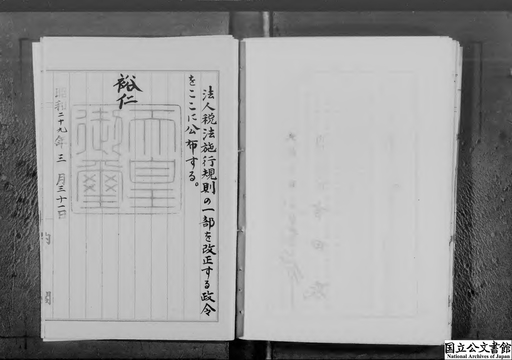 法人税法施行規則の一部を改正する政令
をここに公布する。
裕仁
天皇
御璽
昭和二十九年三月三十一日
国立公文書館
National Archives of Japan